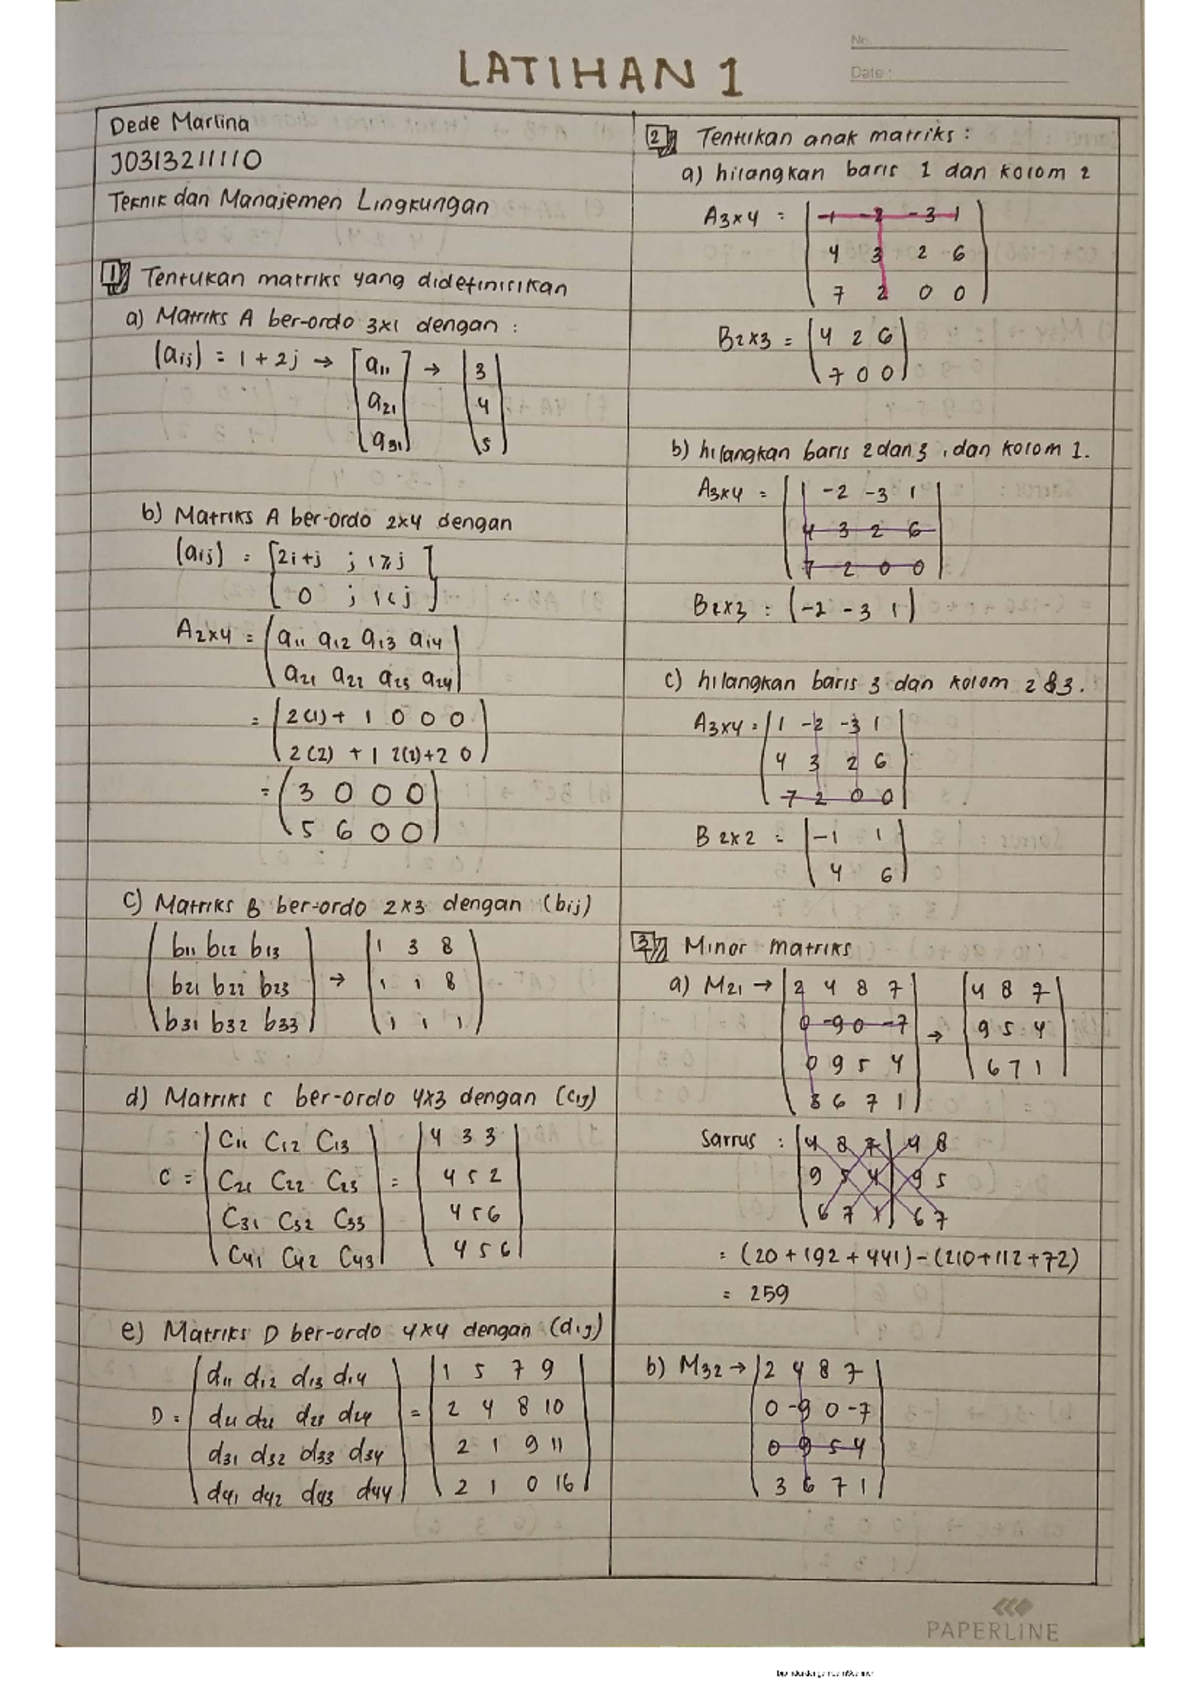 No.
Date :
LATIHAN 1
Dede Marlina
J0313211110
Teknik dan Manajemen Lingkungan
1 Tentukan matriks yang didefinisikan
a) Matriks A ber-ordo 3x1 dengan :
(aij) = 1 + 2j → [a11 → | 3
a21 4
a31] 5
b) Matriks A ber-ordo 2x4 dengan
(aij) = [2i+j ; i≥j ]
[ 0 ; i<j ]
A2x4 = (a11 a12 a13 a14
a21 a22 a23 a24)
= (2(1)+ 1 0 0 0
2(2) + 1 2(2)+2 0)
= (3 0 0 0
5 6 0 0)
c) Matriks B ber-ordo 2x3 dengan (bij)
(b11 b12 b13 → (1 3 8
b21 b22 b23 1 1 8
b31 b32 b33) 1 1 1)
d) Matriks C ber-ordo 4x3 dengan (cij)
C = |C11 C12 C13 = |4 3 3|
C21 C22 C23 4 5 2
C31 C32 C33 4 5 6
C41 C42 C43| 4 5 6|
e) Matriks D ber-ordo 4x4 dengan (dij)
D = (d11 d12 d13 d14 = |1 5 7 9
d21 d22 d23 d24 2 4 8 10
d31 d32 d33 d34 2 1 9 11
d41 d42 d43 d44) 2 1 0 16|
2 Tentukan anak matriks :
a) hilangkan baris 1 dan kolom 2
A3x4 = |1 -2 -3 1|
4 3 2 6
7 2 0 0
B2x3 = (4 2 6
7 0 0)
b) hilangkan baris 2 dan 3 , dan kolom 1.
A3x4 = |1 -2 -3 1|
4 3 2 6
7 2 0 0
B2x3 : (-2 -3 1)
c) hilangkan baris 3 dan kolom 2 & 3.
A3x4 = |1 -2 -3 1|
4 3 2 6
7 2 0 0
B 2x2 = |-1 1|
4 6
3 Minor matriks
a) M21 → |2 4 8 7| → |4 8 7|
0 -9 0 -7 9 5 4
0 9 5 4 6 7 1
3 6 7 1
Sarrus : |4 8 7| 4 8
9 5 4 9 5
6 7 1 6 7
= (20 + 192 + 441) - (210+112+72)
= 259
b) M32 → |2 4 8 7|
0 -9 0 -7
0 9 5 4
3 6 7 1
PAPERLINE